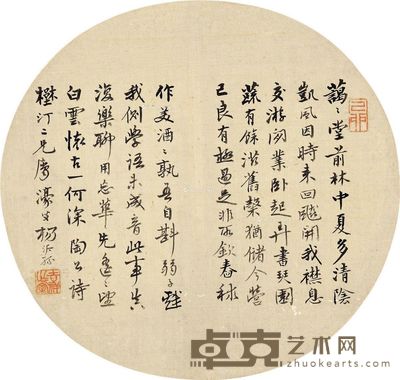 藹〻堂前林中夏多清陰
凱風因時来回飈開我襟息
交游閑業卧起弄書琴園
蔬有餘滋舊穀猶儲今營
己良有極過足非所欽舂秫
作美酒〻熟吾自斟弱子戲
我側學語未成音此事真
復樂聊用忘華簪遙〻望
白雲懷古一何深 陶公詩
汀二兄属 濠叟楊沂孫
卓克艺术网
zhuokearts.com